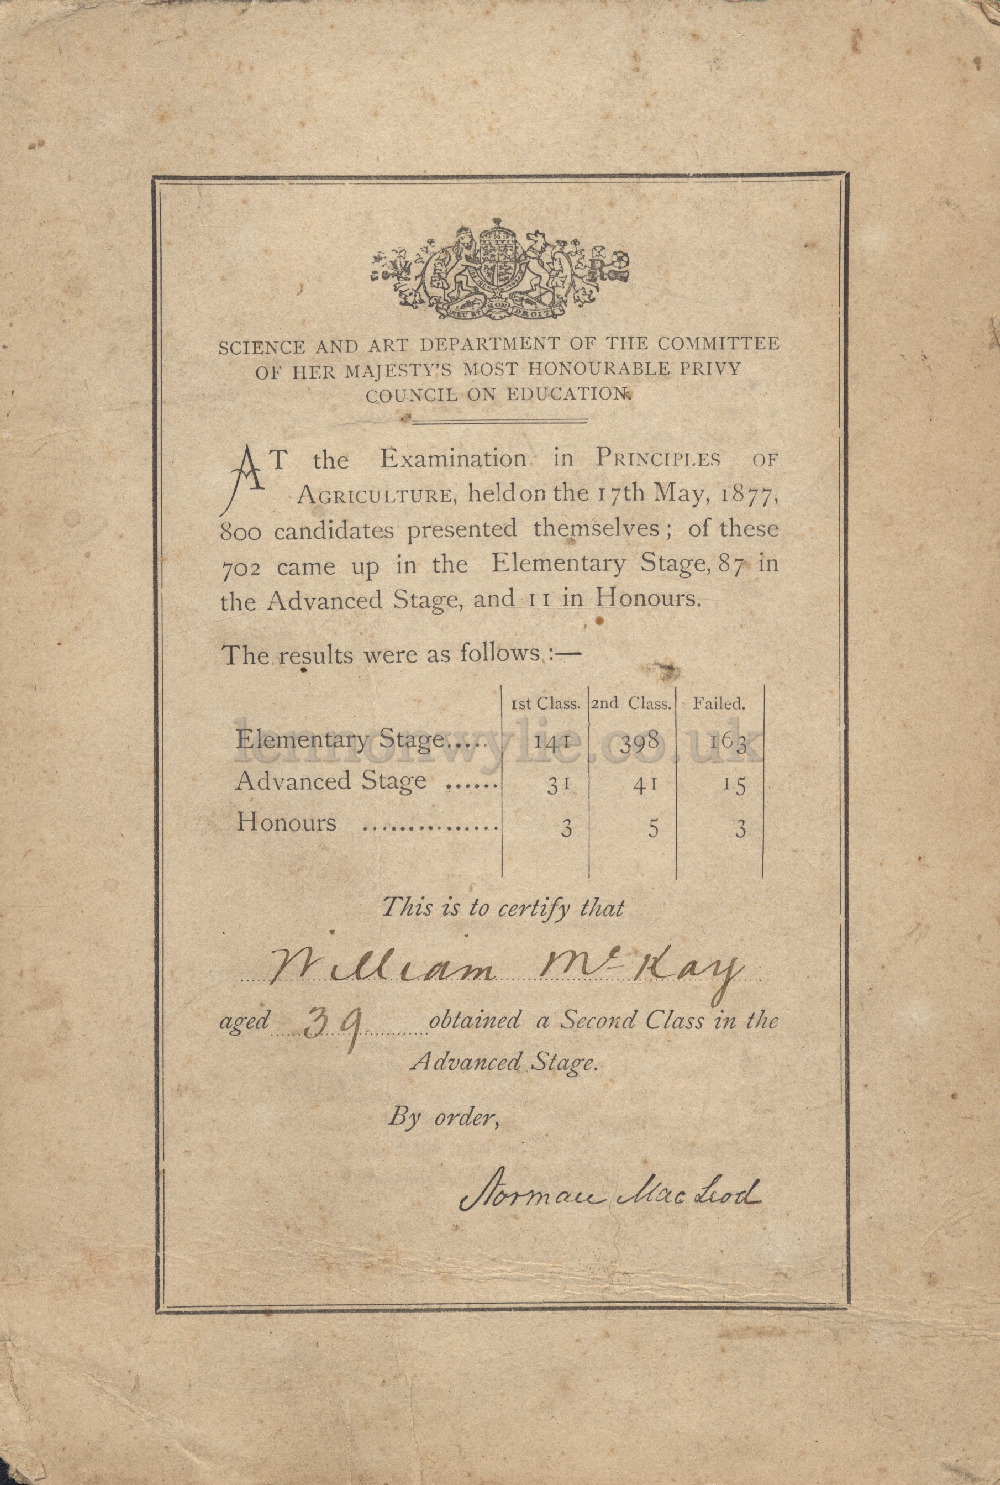 SCIENCE AND ART DEPARTMENT OF THE COMMITTEE
OF HER MAJESTY'S MOST HONOURABLE PRIVY
COUNCIL ON EDUCATION.
AT the Examination in PRINCIPLES OF
AGRICULTURE, held on the 17th May, 1877,
800 candidates presented themselves; of these
702 came up in the Elementary Stage, 87 in
the Advanced Stage, and 11 in Honours.
The results were as follows:—
1st Class. 2nd Class. Failed.
Elementary Stage..... 141 398 163
lennonwylie.co.uk
Advanced Stage ...... 31 41 15
Honours ............... 3 5 3
This is to certify that
William McKay
aged 39 obtained a Second Class in the
Advanced Stage.
By order,
Norman MacLeod